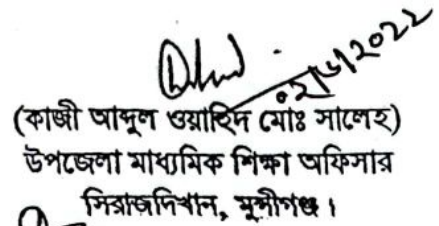 ০২/৬/২০২২
(কাজী আব্দুল ওয়াহিদ মোঃ সালেহ)
উপজেলা মাধ্যমিক শিক্ষা অফিসার
সিরাজদিখান, মুন্সীগঞ্জ।